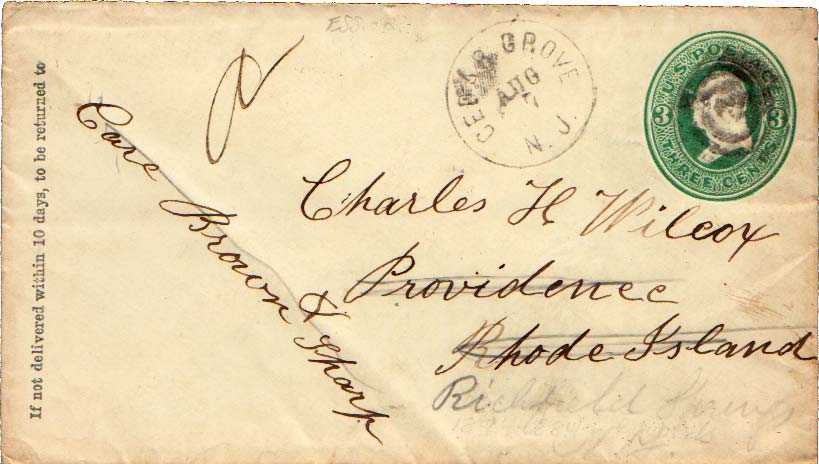 If not delivered within 10 days, to be returned to
CEDAR GROVE
AUG
7
N. J.
U.S. POSTAGE
3 3
THREE CENTS
Care Brown & Sharp
Charles H Wilcox
Providence
Rhode Island
Richfield Springs